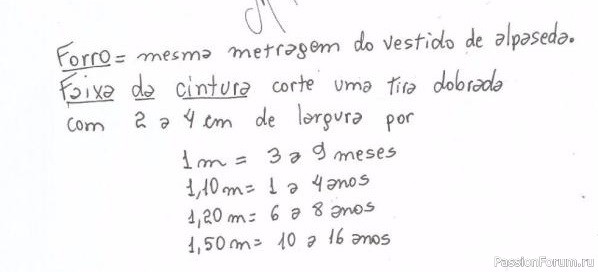 Forro = mesma metragem do vestido de alpaseda.
Faixa da cintura corte uma tira dobrada
com 2 a 4 cm de largura por
1 m = 3 a 9 meses
1,10 m = 1 a 4 anos
1,20 m = 6 a 8 anos
1,50 m = 10 a 16 anos
PassionForum.ru